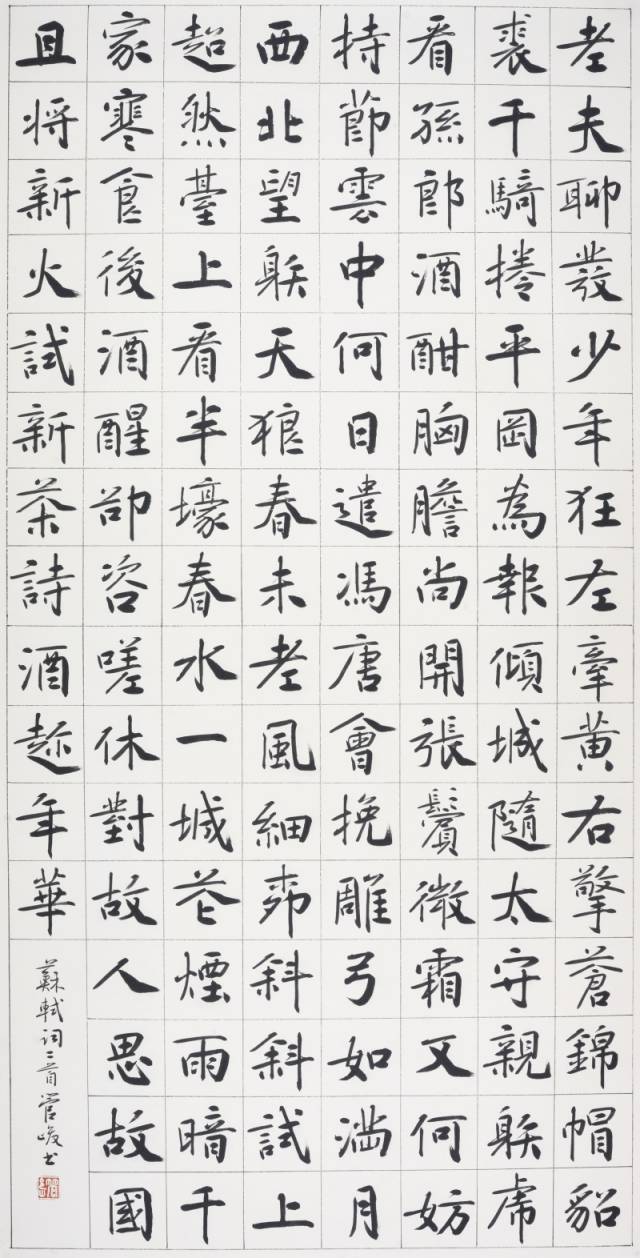 老夫聊發少年狂左牽黃右擎蒼錦帽貂
裘千騎捲平岡為報傾城隨太守親䠶虎
看孫郎酒酣胸膽尚開張鬢微霜又何妨
持節雲中何日遣馮唐會挽雕弓如滿月
西北望䠶天狼春未老風細柳斜斜試上
超然臺上看半壕春水一城花煙雨暗千
家寒食後酒醒卻咨嗟休對故人思故國
且將新火試新茶詩酒趂年華
蘇軾詞二首管峻书